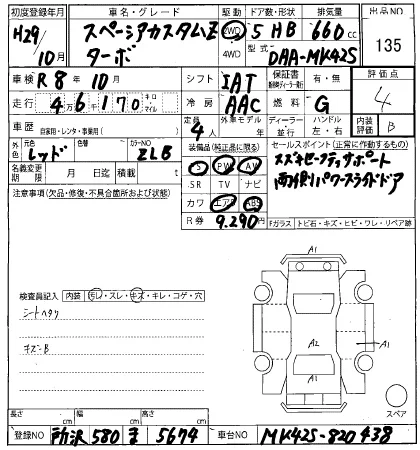 初度登録年月 車名・グレード 駆動 ドア数・形状 排気量 出品NO
H29/10月 スペーシアカスタムZ ターボ 2WD 4WD 5 HB 660cc 135
型式 DAA-MK42S
車検 R8年10月 シフト IAT 保証書 有・無 評価点
走行 4万6千170 キロ・マイル 冷房 AAC 燃料 G 4
車歴 自家用・レンタ・事業用( ) 定員 4人 外車モデル年 年 ディーラー 並行 ハンドル 左・右 内装評価 B
外色 元色 レッド 色替 カラーNO ZLB 装備品(純正品に限る) セールスポイント(正常に作動するもの)
名義変更期限 月 日迄 積載 t S PW AW スズキセーフティサポート
注意事項(欠品・修復・不具合箇所および状態) SR TV ナビ 両側パワースライドドア
カワ エアB ABS
R券 9.290円 Fガラス トビ石・キズ・ヒビ・ワレ・リペア跡
A1
検査員記入 内装 汚レ・スレ・キズ・キレ・コゲ・穴
シートヘタリ
キズ-B
A2 A1
A1
スペア
長さ cm 幅 cm 高さ cm
登録NO 所沢 580 ま 5674 車台NO MK42S-820438